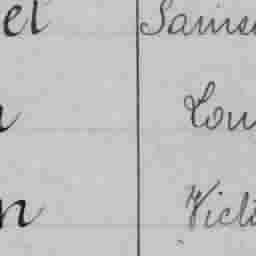 el Samu
n Lou
n Victo